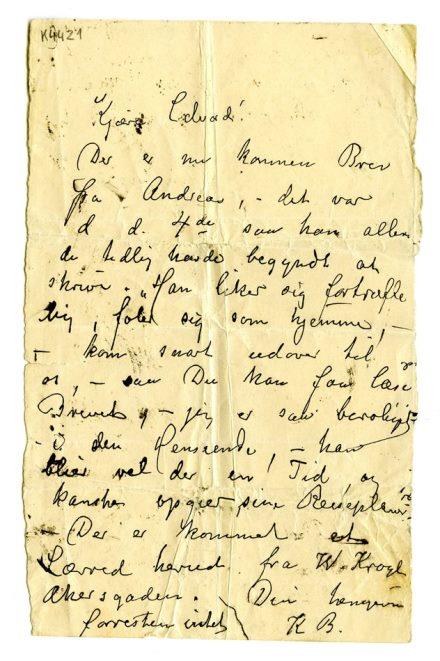 K4421
Kjære Edvard!
Der er nu kommen Brev
fra Andreas, - det var
d. d. 4de saa han allere
de tidlig havde begyndt at
skrive. "Han liker sig fortræffe
lig, føler sig som hjemme, -
- kom snart udover til
os, - saa Du kan faa læse
Brevet, - jeg er saa beroliget
i den Henseende, - han
blir vel der en Tid, og
kanske opgir sine Reiseplaner.
- Der er kommet et
Lærred herud fra W. Krogh
Akersgaden. Din hengivne
forresten intet K B.